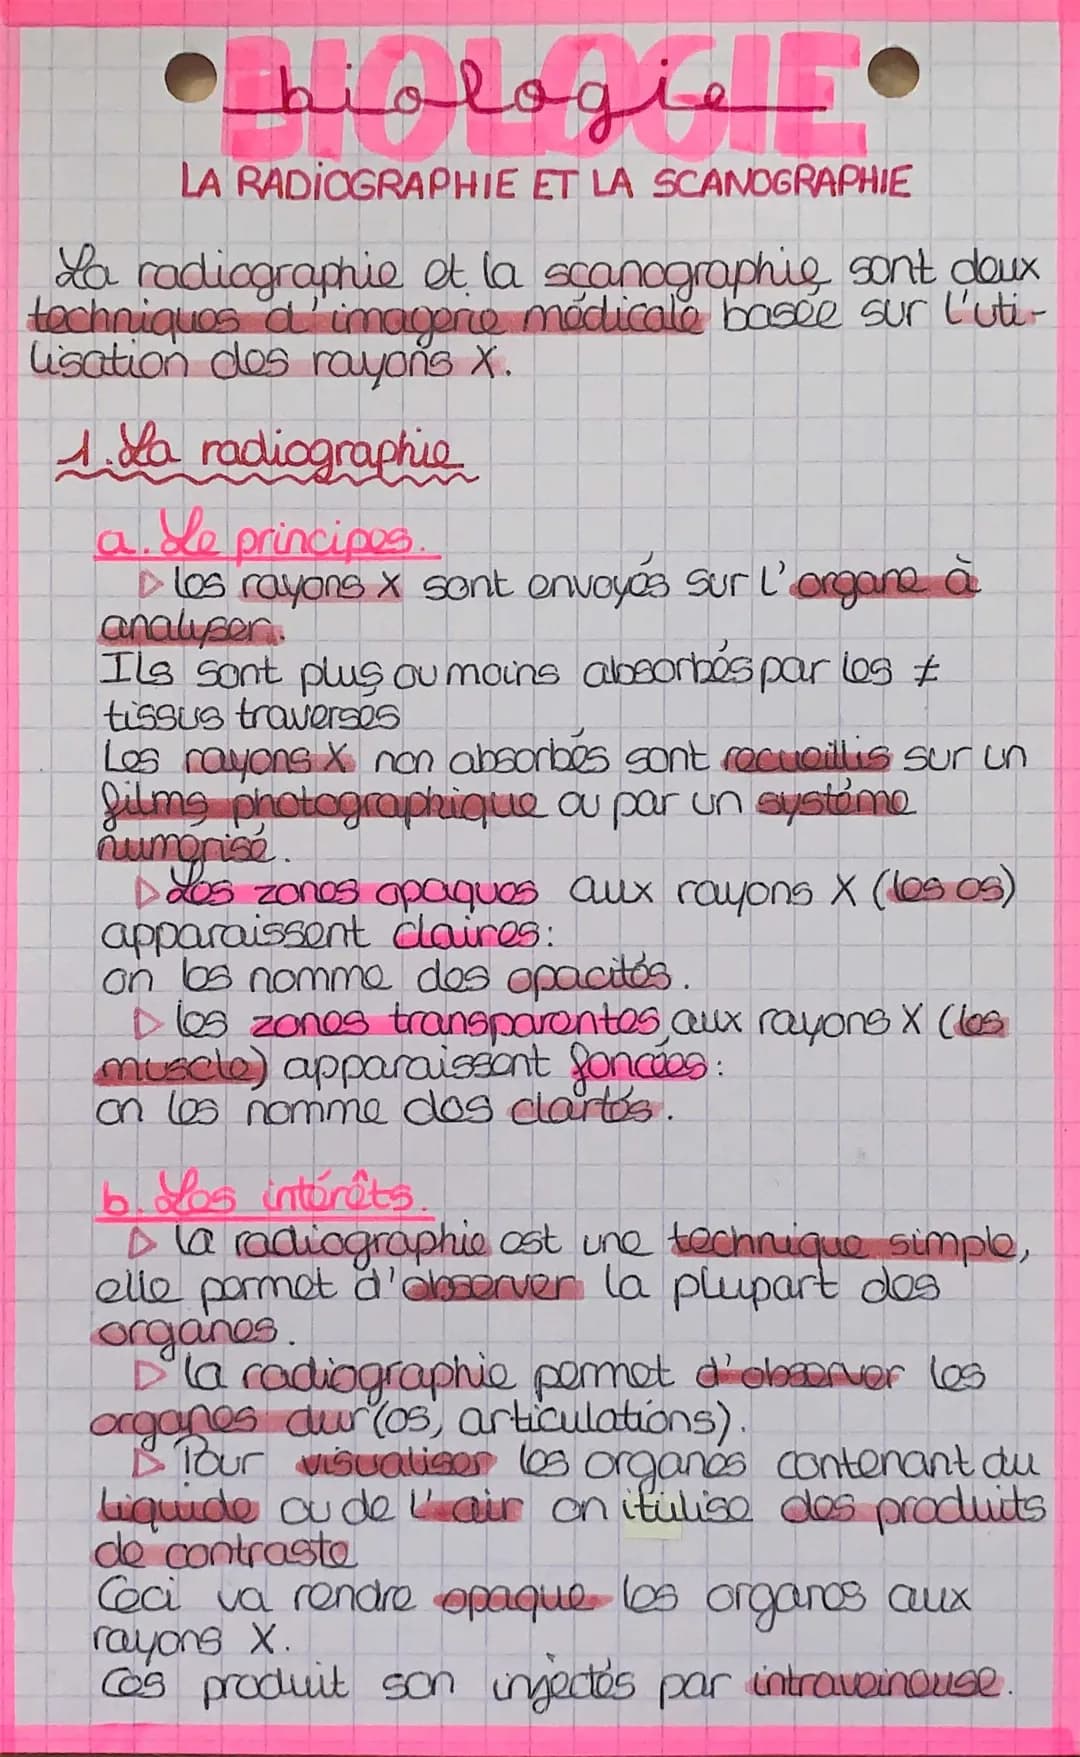 BIOLOGIE
biologie
LA RADIOGRAPHIE ET LA SCANOGRAPHIE
La radiographie et la scanographie sont deux
techniques d'imagerie médicale basée sur l'uti-
lisation des rayons X.
1. La radiographie
a. Le principes.
▷ les rayons X sont envoyés sur l'organe à
analyser.
Ils sont plus ou moins absorbés par les ≠
tissus traverses
Les rayons X non absorbés sont recueillis sur un
films photographique ou par un système
numérisé.
▷ Les zones opaques aux rayons X (les os)
apparaissent claires:
on les nomme des opacités.
▷ les zones transparentes aux rayons X (les
muscle) apparaissent foncées:
on les nomme des clartés.
b. Les intérêts.
▷ la radiographie est une technique simple,
elle permet d'observer la plupart des
organes.
▷ la radiographie permet d'observer les
organes dur (os, articulations).
▷ Pour visualiser les organes contenant du
liquide ou de l'air on itulise des produits
de contraste
Ceci va rendre opaque les organes aux
rayons X.
Ces produit son injectés par intraveineuse.